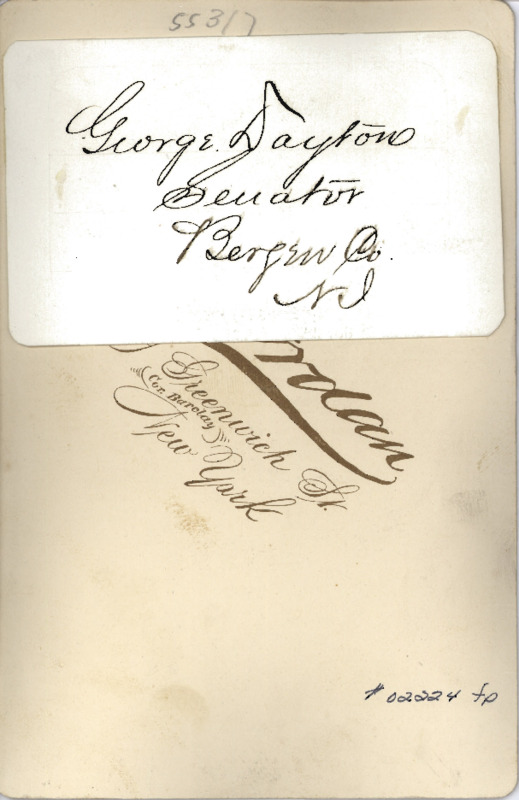 55317
George Dayton
Senator
Bergen Co.
NJ
rdan
Greenwich St.
Cor. Barclay
New York
# 02224 fp